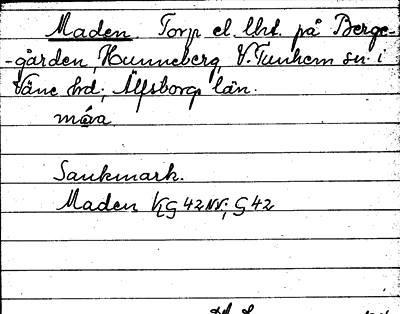 Maden. Torp el. lht. på Berge-
-gården, Hunneberg, V. Tunhem sn. i
Väne hd; Älfsborgs län.
måva
Sankmark.
Maden KG 42 NV; G 42